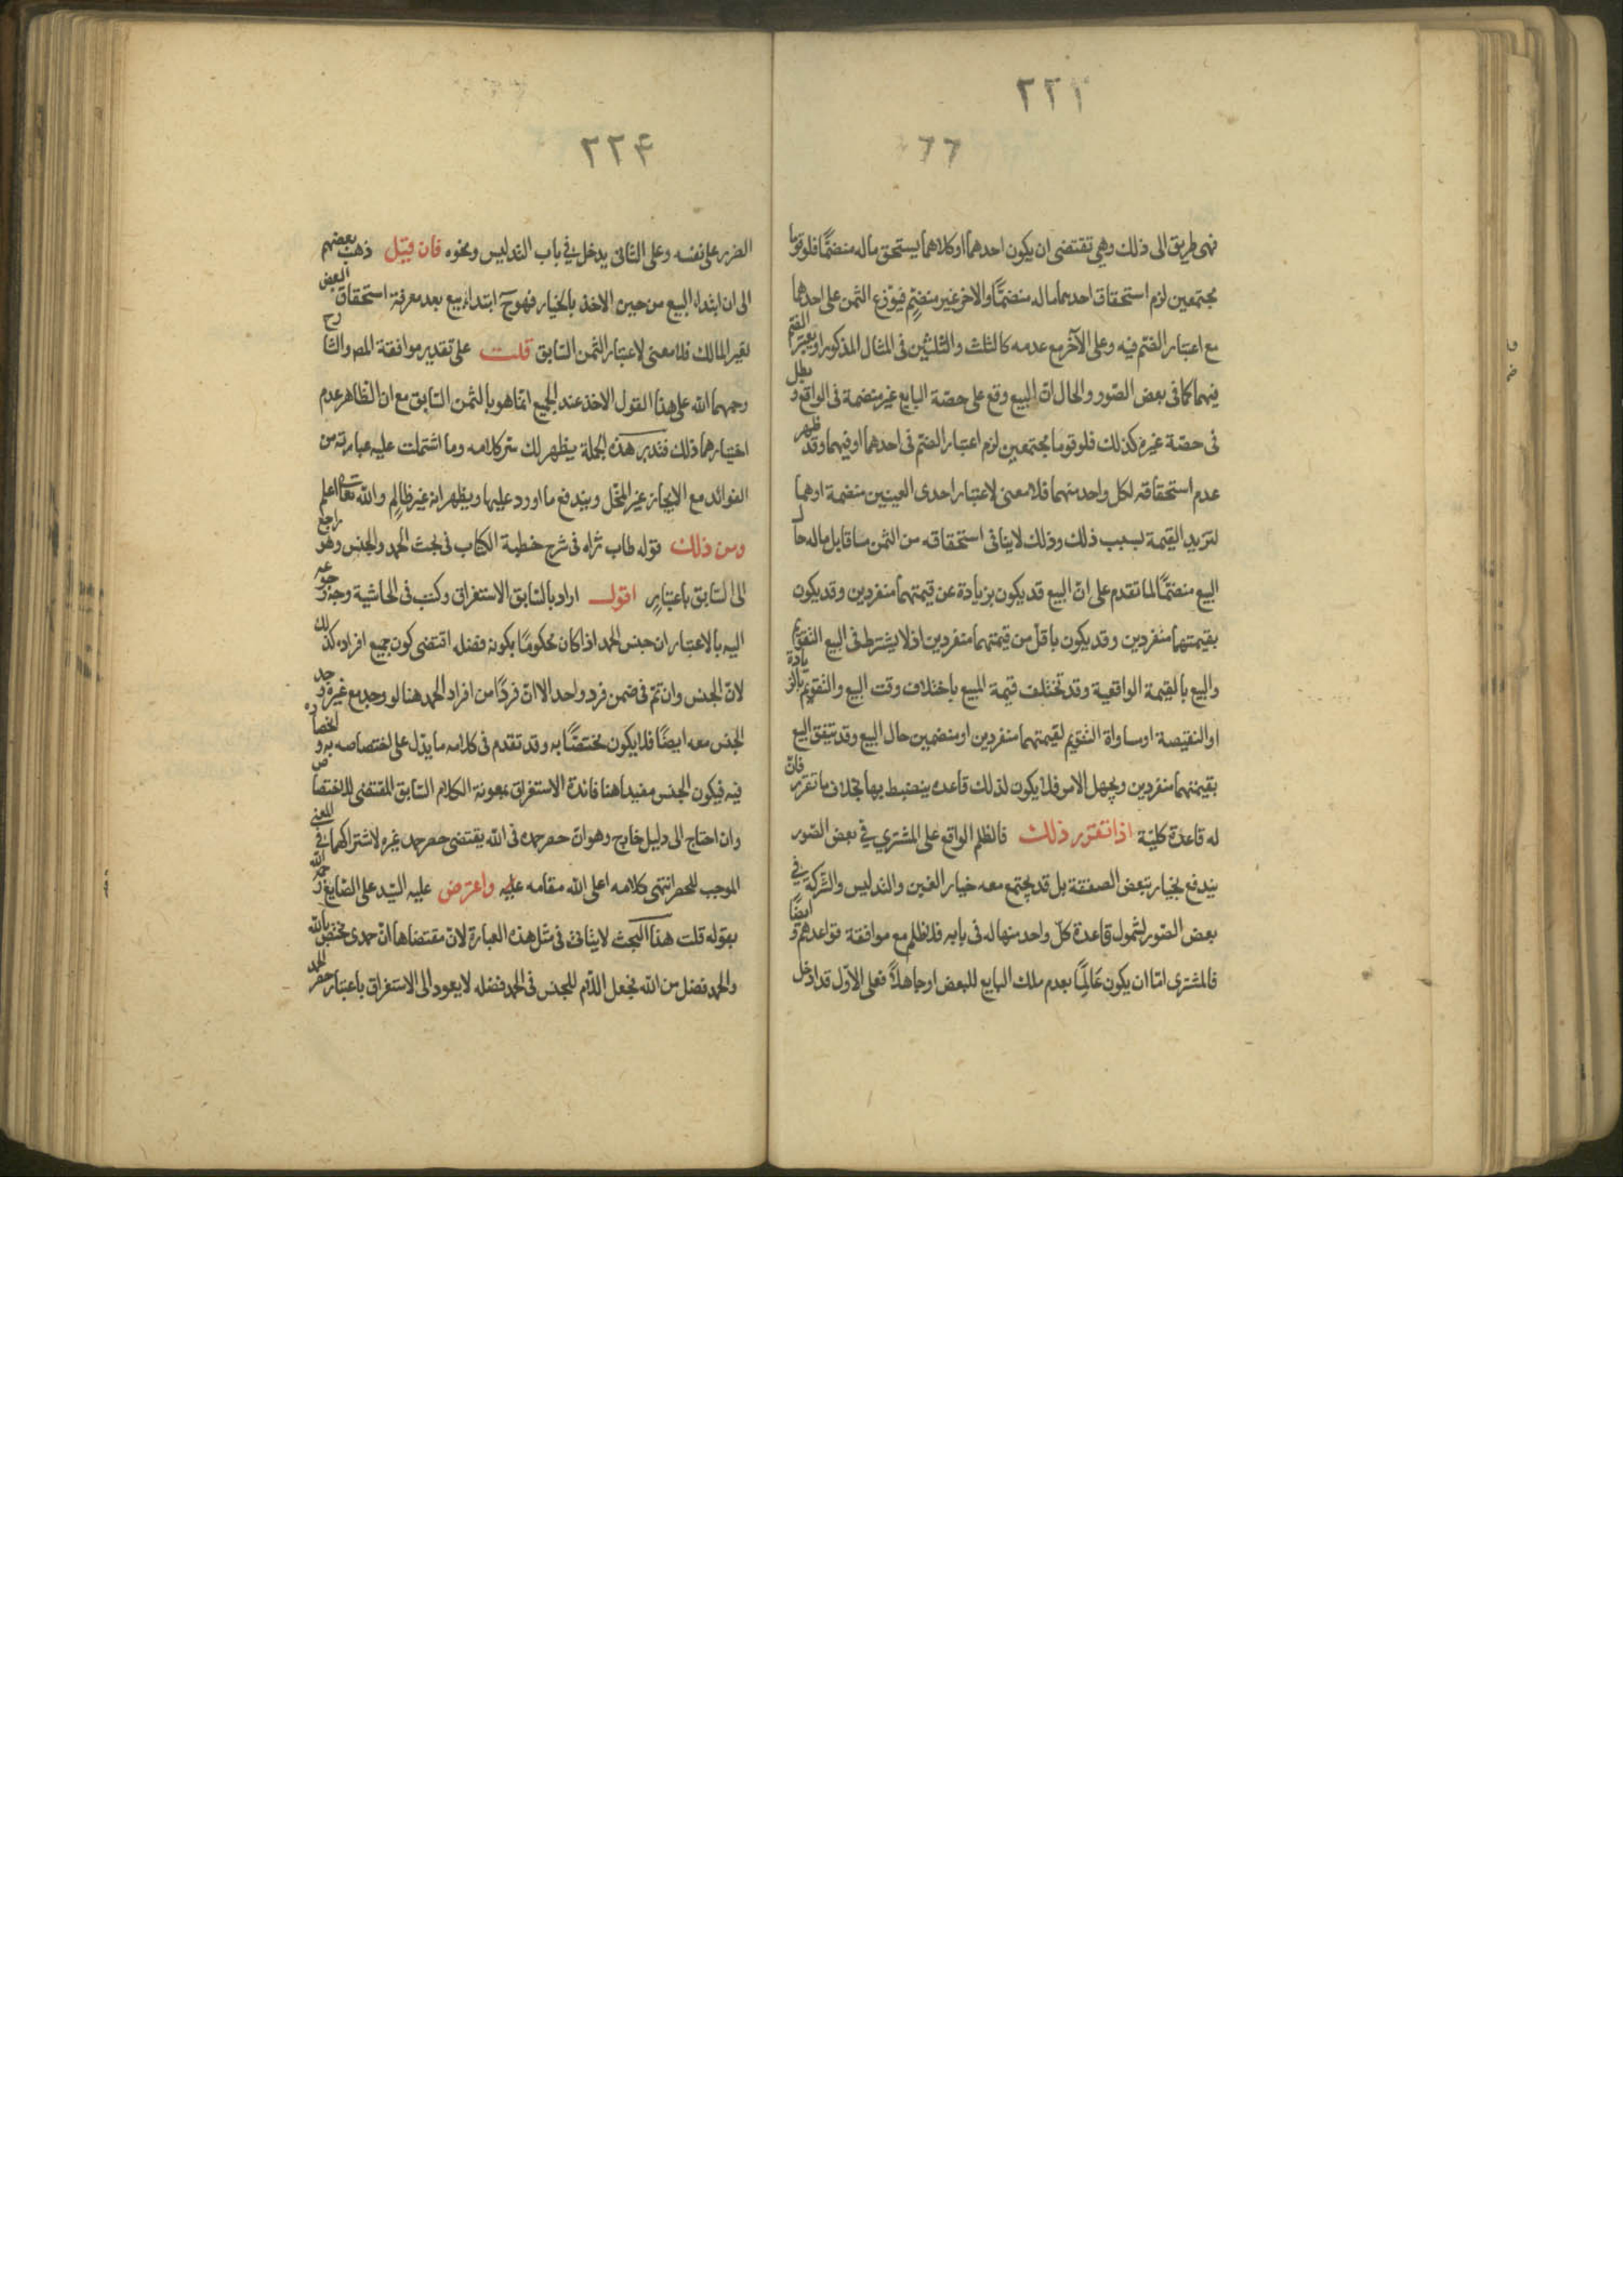 ٢٢٣
٦٦
فهى طريق الى ذلك وهي تقتضى ان يكون احدهما او كلاهما يستحق ماله منضمًّا فلو قوما
مجتمعين لزم استحقاق احدهما ماله منضمًّا والاخر غير منضمّ فيوزع الثمن على احدهما
مع اعتبار الضم فيه وعلى الآخر مع عدمه كالثلث والثلثين فى المثال المذكور او يعتبر الضم
فيهما كما فى بعض الصّور والحال انّ البيع وقع على حصّة البايع غير منضمة فى الواقع و بطل
فى حصّة غيره كذلك فلو قوما مجتمعين لزم اعتبار الضمّ فى احدهما او فيهما وقد ظهر
عدم استحقاقه لكل واحد منهما فلا معنى لاعتبار احدى العينين منضمة او هما
لتزيد القيمة بسبب ذلك وذلك لا ينافى استحقاقه من الثمن ما قابل ماله حال
البيع منضمًّا لما تقدم على انّ البيع قد يكون بزيادة عن قيمتهما منفردين وقد يكون
بقيمتهما منفردين وقد يكون باقلّ من قيمتهما منفردين اذ لا يشترط فى البيع التقويم
والبيع بالقيمة الواقعية وقد تختلف قيمة المبيع باختلاف وقت البيع والتقويم بالزيادة
او النقيصة او ساواة التقويم لقيمتهما منفردين او منضمين حال البيع وقد يتفق البيع
بقيمتهما منفردين ويجهل الامر فلا يكون لذلك قاعدة ينضبط بها بخلاف ما تقرر فانّ
له قاعدة كليّة اذا تقرر ذلك فالظلم الواقع على المشتري في بعض الصّور
يندفع بخيار تبعض الصفقة بل قد يجتمع معه خيار الغبن والتدليس والشركة في
بعض الصّور لشمول قاعدة كلّ واحد منها له فى بابه فلا ظلم مع موافقة قواعدهم و ايضًا
فالمشترى امّا ان يكون عَالِمًا بعدم ملك البايع للبعض او جاهلاً فعلى الاوّل قد ادخل
٢٢۴
الضرر على نفسه وعلى الثانى يدخل في باب التدليس ونحوه فان قيل ذهب بعضهم
الى ان ابتداء البيع من حين الاخذ بالخيار فهو ح ابتداء بيع بعد معرفة استحقاق البعض
لغير المالك فلا معنى لاعتبار الثمن السّابق قلت على تقدير موافقة المص والشارح
رحمهما الله على هذا القول الاخذ عند الجميع انّما هو بالثمن السّابق مع ان الظّاهر عدم
اختيارهما ذلك فتدبر هذه الجملة يظهر لك سر كلامه وما اشتملت عليه عبارته من
الفوائد مع الايجاز غير المخلّ ويندفع ما اورد عليها ويظهر انه غير ظالم والله تعالى اعلم
ومن ذلك قوله طاب ثراه فى شرح خطبة الكتاب فى بحث الحمد والجنس وهو راجع
الى السّابق باعتبار اقول اراد بالسّابق الاستغراق وكتب فى الحاشية وجه رجوعه
اليه بالاعتبار ان جنس الحمد اذا كان محكومًا بكونه فضله اقتضى كون جميع افراده كذلك
لانّ الجنس وان تمّ فى ضمن فرد واحد الا انّ فردًا من افراد الحمد هنا لو وجد مع غيره وجد
الجنس معه ايضًا فلا يكون مختصًّا به وقد تقدم فى كلامه ما يدلّ على اختصاصه به و انحصاره
فيه فيكون الجنس مفيدا هنا فائدة الاستغراق بمعونة الكلام السّابق المقتضى للاختصاص
وان احتاج الى دليل خارج وهو انّ حصر حمده فى الله يقتضى حصر حمد غيره لاشتراكهما في المعنى
الموجب للحصر انتهى كلامه اعلى الله مقامه عليه واعترض عليه السّيد على الصّايغ رحمه الله
بقوله قلت هذا البحث لا يتاتى فى مثل هذه العبارة لانّ مقتضاها انّ حمدى مختص بالله
والحمد فضل من الله فجعل اللّام للجنس فى الحمد فضله لا يعود الى الاستغراق باعتبار حصر الحمد